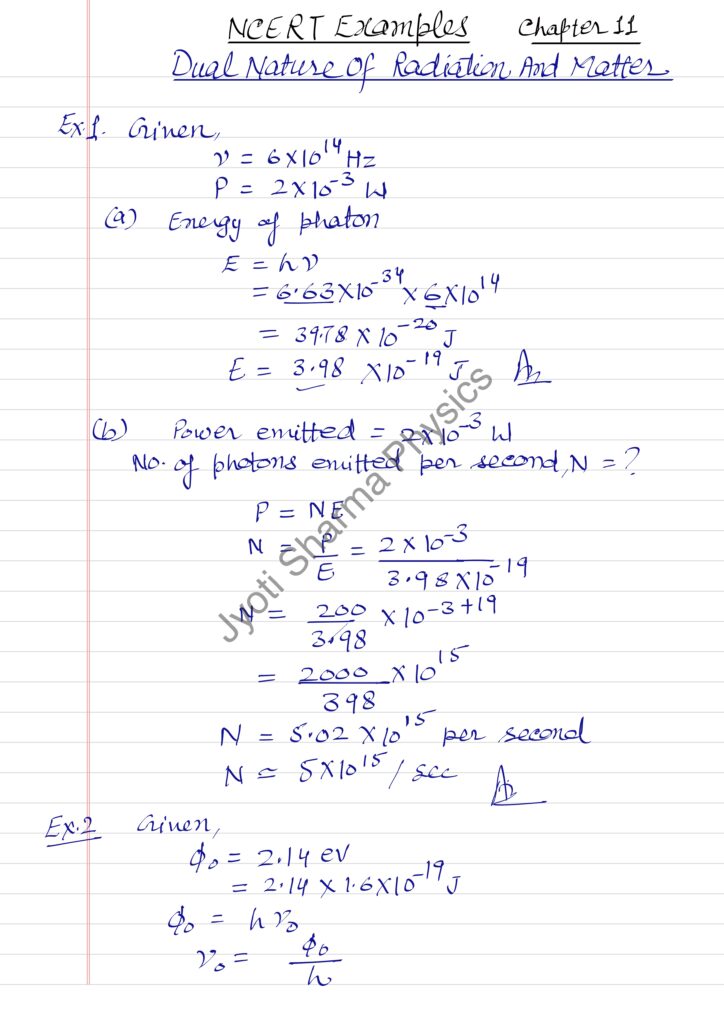 NCERT Examples Chapter 11
Dual Nature Of Radiation And Matter
Ex.1. Given,
ν = 6×10^14 Hz
P = 2×10^-3 W
(a) Energy of photon
E = hν
= 6.63×10^-34 × 6×10^14
= 39.78 × 10^-20 J
E = 3.98 ×10^-19 J Ans
(b) Power emitted = 2×10^-3 W
No. of photons emitted per second, N = ?
P = NE
N = P/E = 2×10^-3 / 3.98×10^-19
N = 200/3.98 ×10^-3+19
= 2000/398 ×10^15
N = 5.02 ×10^15 per second
N = 5×10^15 / sec Ans
Ex.2 Given,
ϕ₀ = 2.14 eV
= 2.14 × 1.6×10^-19 J
ϕ₀ = hν₀
ν₀ = ϕ₀/h
Jyoti Sharma Physics